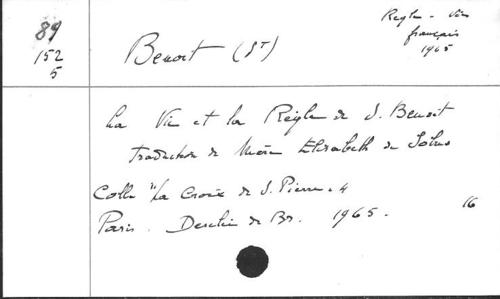 89
152
5
Benoit (St)
Règle - Vie
français
1965
La Vie et la Règle de S. Benoit
traduction de Mère Elisabeth de Solms
Coll. "La Croix de S. Pierre. 4
Paris. Desclée de Br. 1965.
16